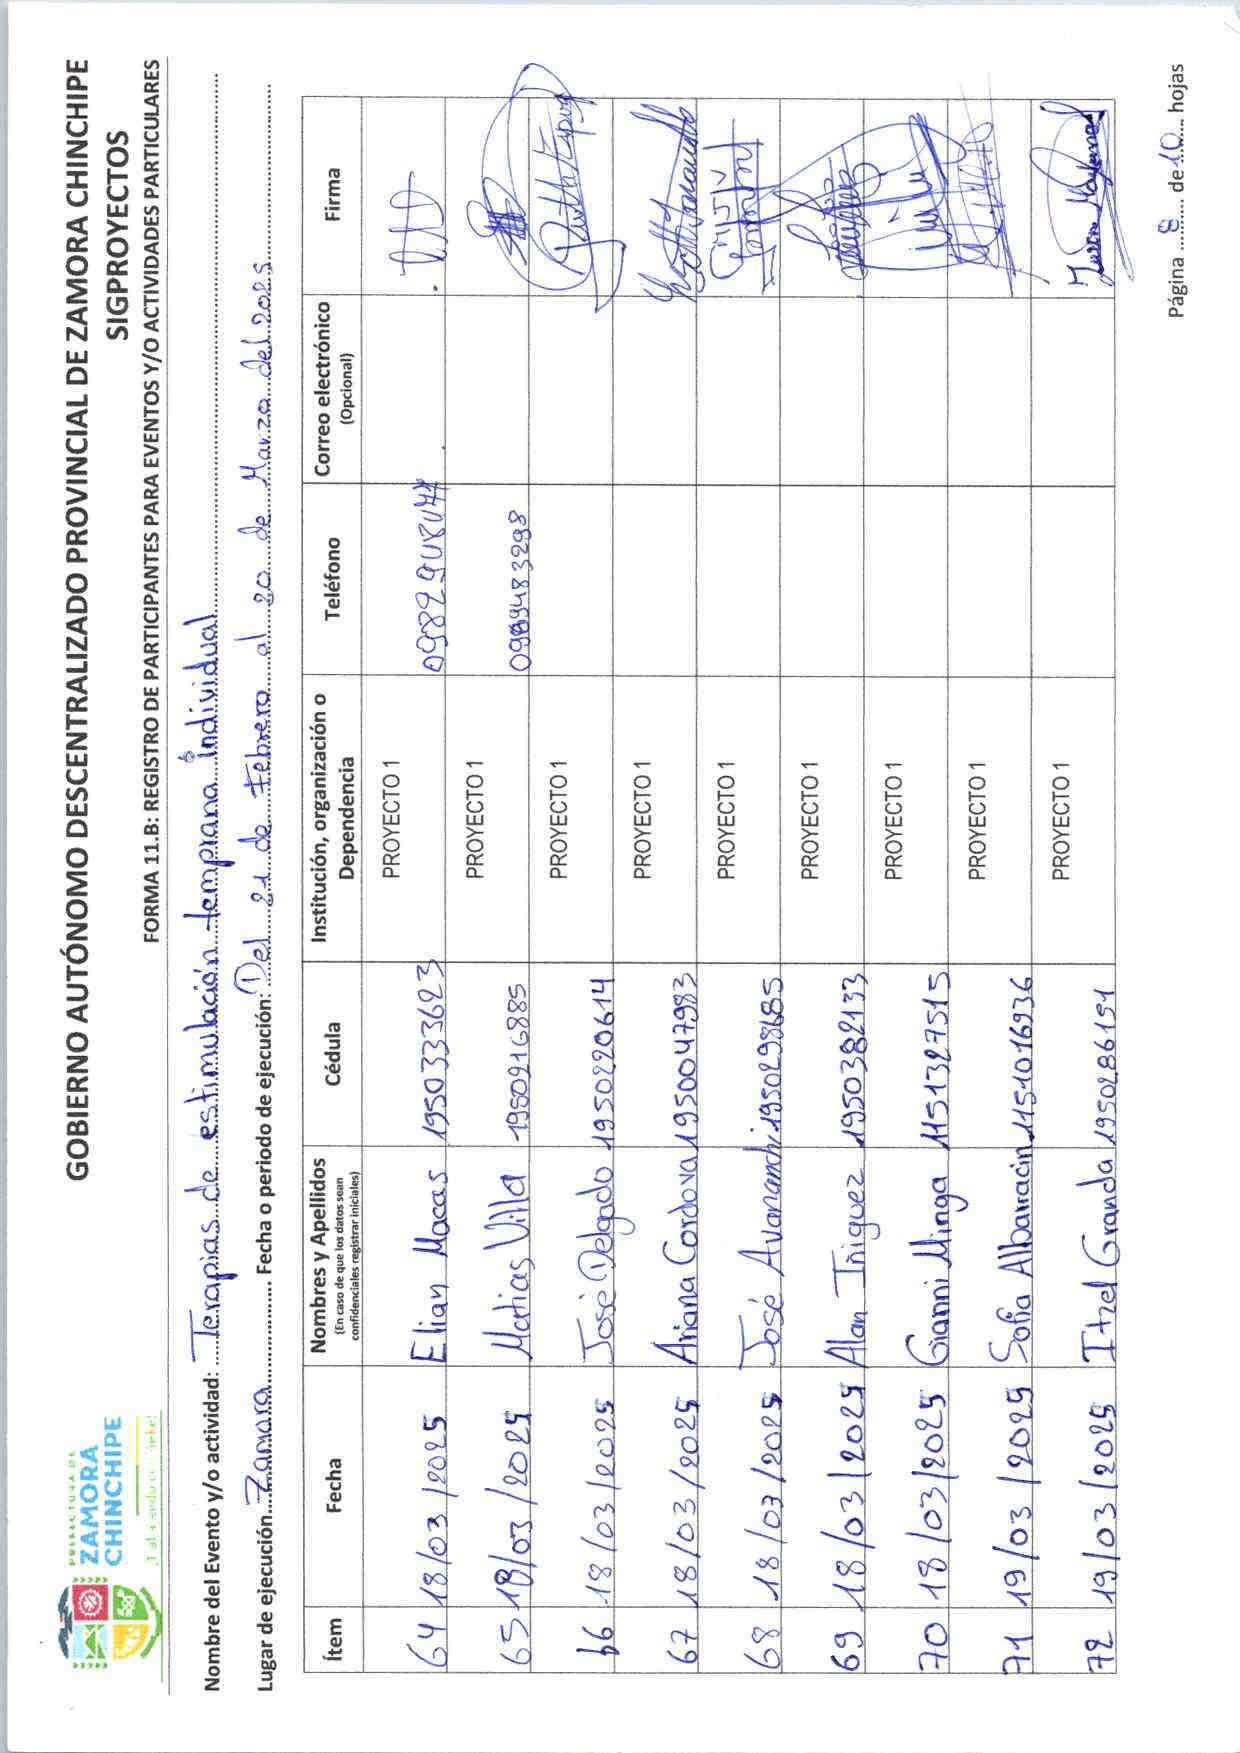 PREFECTURA DE
ZAMORA
CHINCHIPE
GOBIERNO AUTÓNOMO DESCENTRALIZADO PROVINCIAL DE ZAMORA CHINCHIPE
SIGPROYECTOS
FORMA 11.B: REGISTRO DE PARTICIPANTES PARA EVENTOS Y/O ACTIVIDADES PARTICULARES
Nombre del Evento y/o actividad: Terapias de estimulación temprana individual
Lugar de ejecución Zamora Fecha o periodo de ejecución: Del 21 de Febrero al 20 de Marzo del 2025
Ítem Fecha Nombres y Apellidos (En caso de que los datos sean confidenciales registrar iniciales) Cédula Institución, organización o Dependencia Teléfono Correo electrónico (Opcional) Firma
64 18/03/2025 Elian Macas 1950333623 PROYECTO 1
65 18/03/2025 Matias Villa 1950916885 PROYECTO 1
66 18/03/2025 José Delgado 1950220614 PROYECTO 1
67 18/03/2025 Ariana Cordova 1950047983 PROYECTO 1
68 18/03/2025 José Avananchi 1950298685 PROYECTO 1
69 18/03/2025 Alan Iñiguez 1950382133 PROYECTO 1
70 18/03/2025 Gianni Minga 1151327515 PROYECTO 1
71 19/03/2025 Sofia Albarracin 1151016936 PROYECTO 1
72 19/03/2025 Itzel Granda 1950286151 PROYECTO 1
Página 8 de 10 hojas